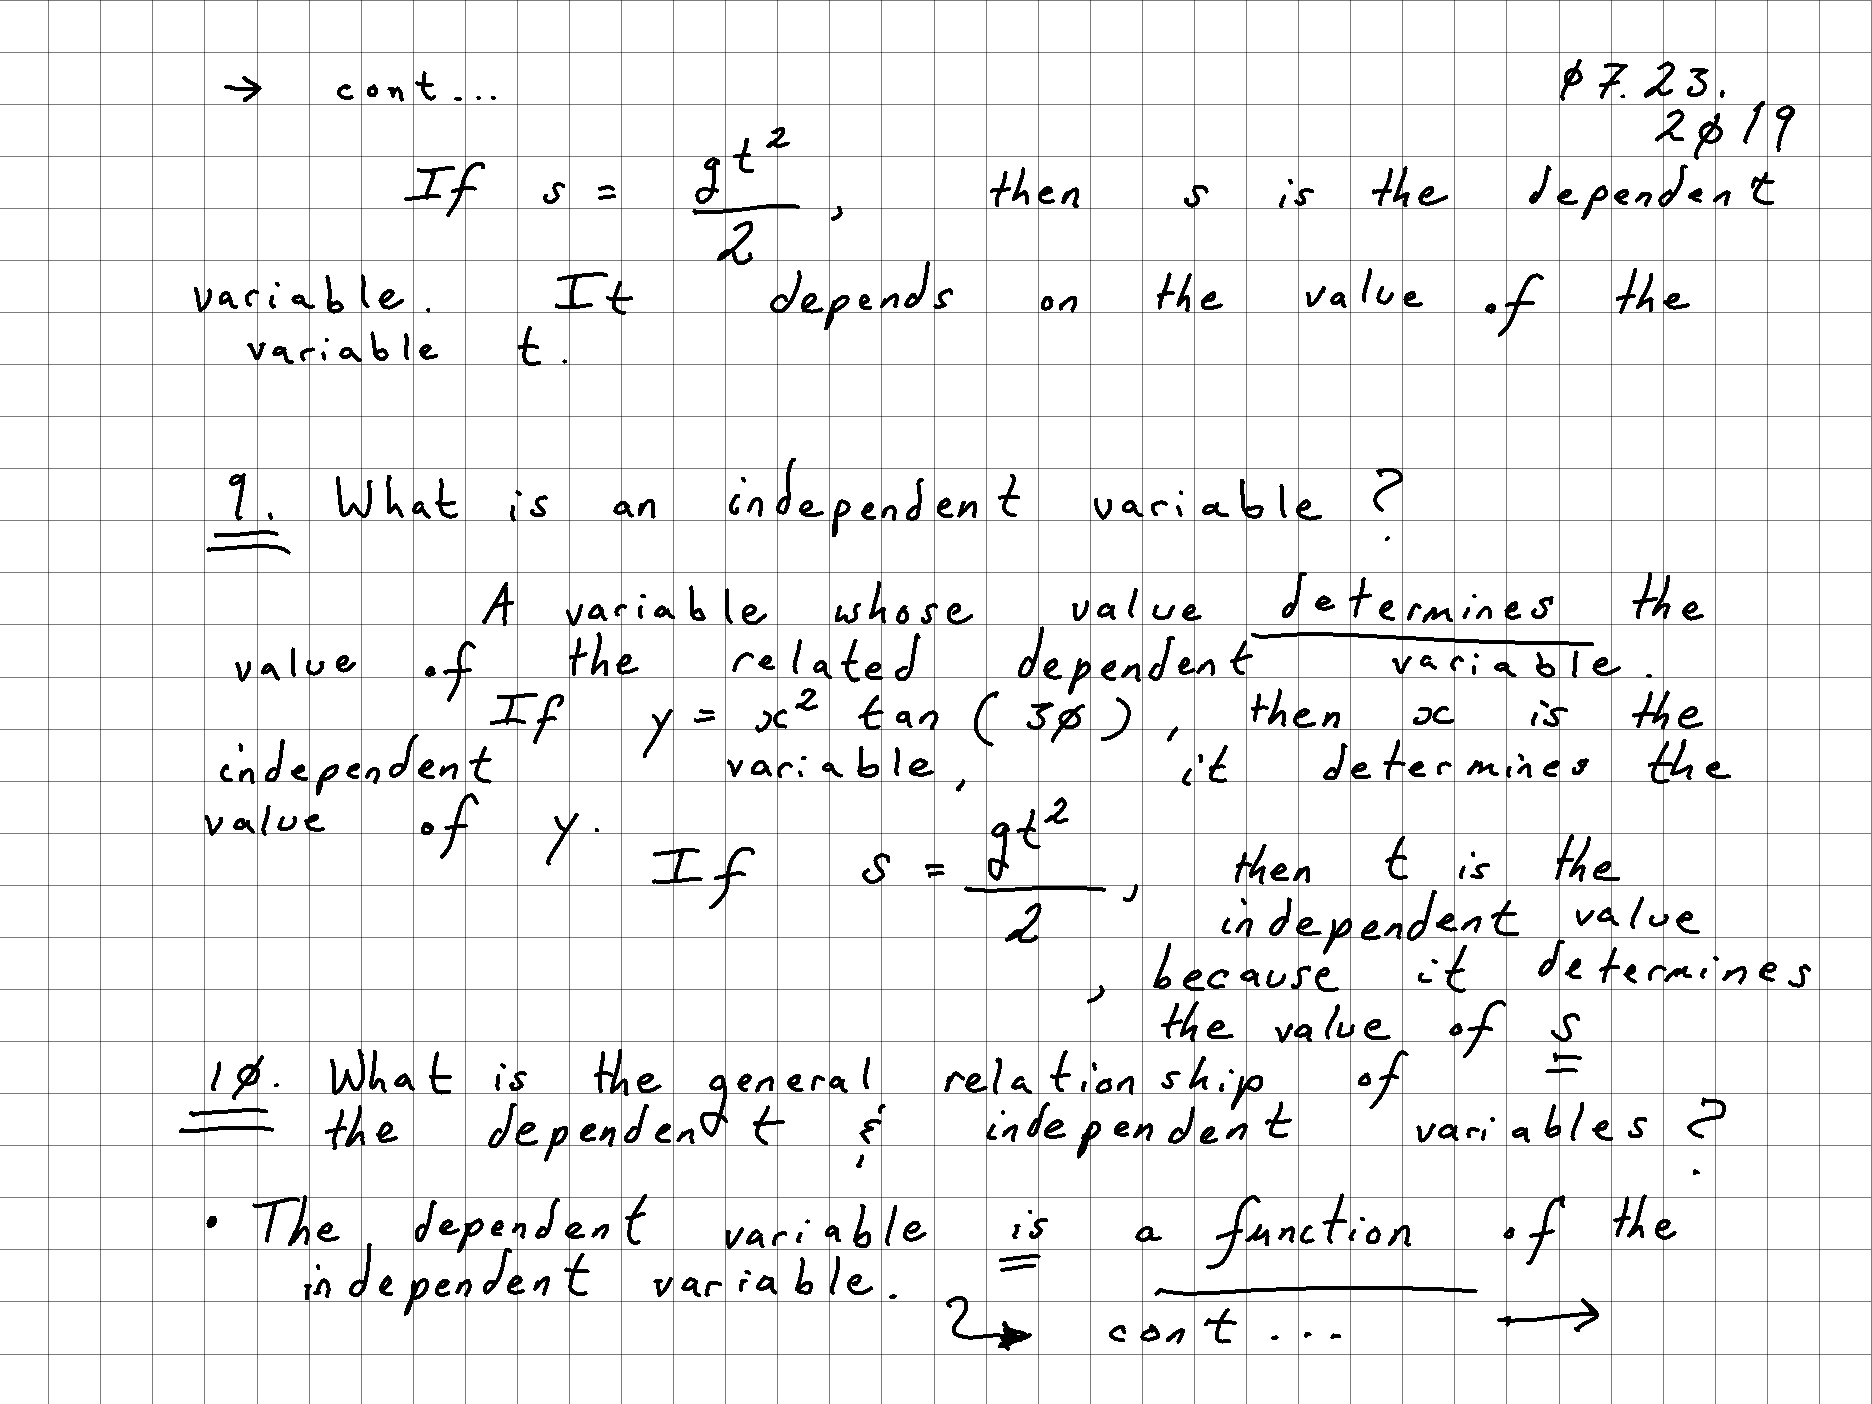 → cont... ø7.23.
2ø19
If s = gt²/2, then s is the dependent
variable. It depends on the value of the
variable t.
9. What is an independent variable?
A variable whose value determines the
value of the related dependent variable.
If y = x² tan (3ø), then x is the
independent variable, it determines the
value of y.
If s = gt²/2, then t is the
independent value
, because it determines
the value of s
1ø. What is the general relationship of
the dependent & independent variables?
• The dependent variable is a function of the
independent variable.
cont... →